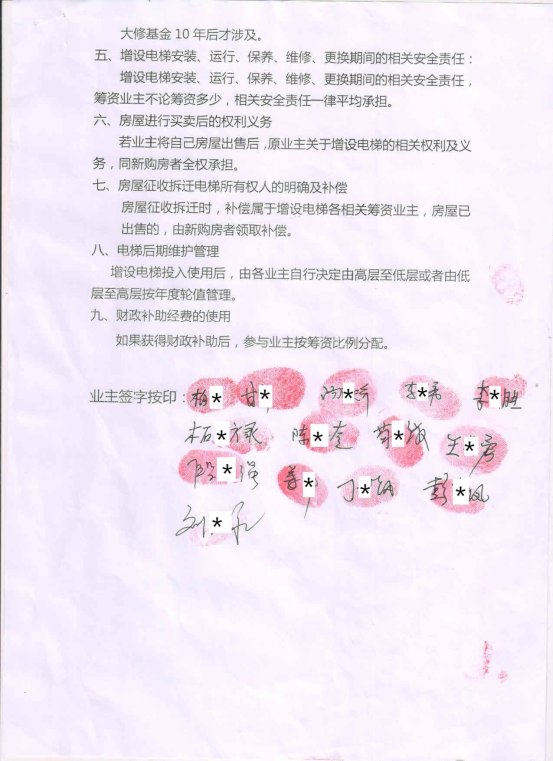 大修基金 10 年后才涉及。
五、增设电梯安装、运行、保养、维修、更换期间的相关安全责任：
增设电梯安装、运行、保养、维修、更换期间的相关安全责任，
筹资业主不论筹资多少，相关安全责任一律平均承担。
六、房屋进行买卖后的权利义务
若业主将自己房屋出售后，原业主关于增设电梯的相关权利及义
务，同新购房者全权承担。
七、房屋征收拆迁电梯所有权人的明确及补偿
房屋征收拆迁时，补偿属于增设电梯各相关筹资业主，房屋已
出售的，由新购房者领取补偿。
八、电梯后期维护管理
增设电梯投入使用后，由各业主自行决定由高层至低层或者由低
层至高层按年度轮值管理。
九、财政补助经费的使用
如果获得财政补助后，参与业主按筹资比例分配。
业主签字按印：柏* 甘* 陶* 李* 李*胜
柏* 陈*奎 * 王*
段*强 * 丁* 彭*凤
刘*